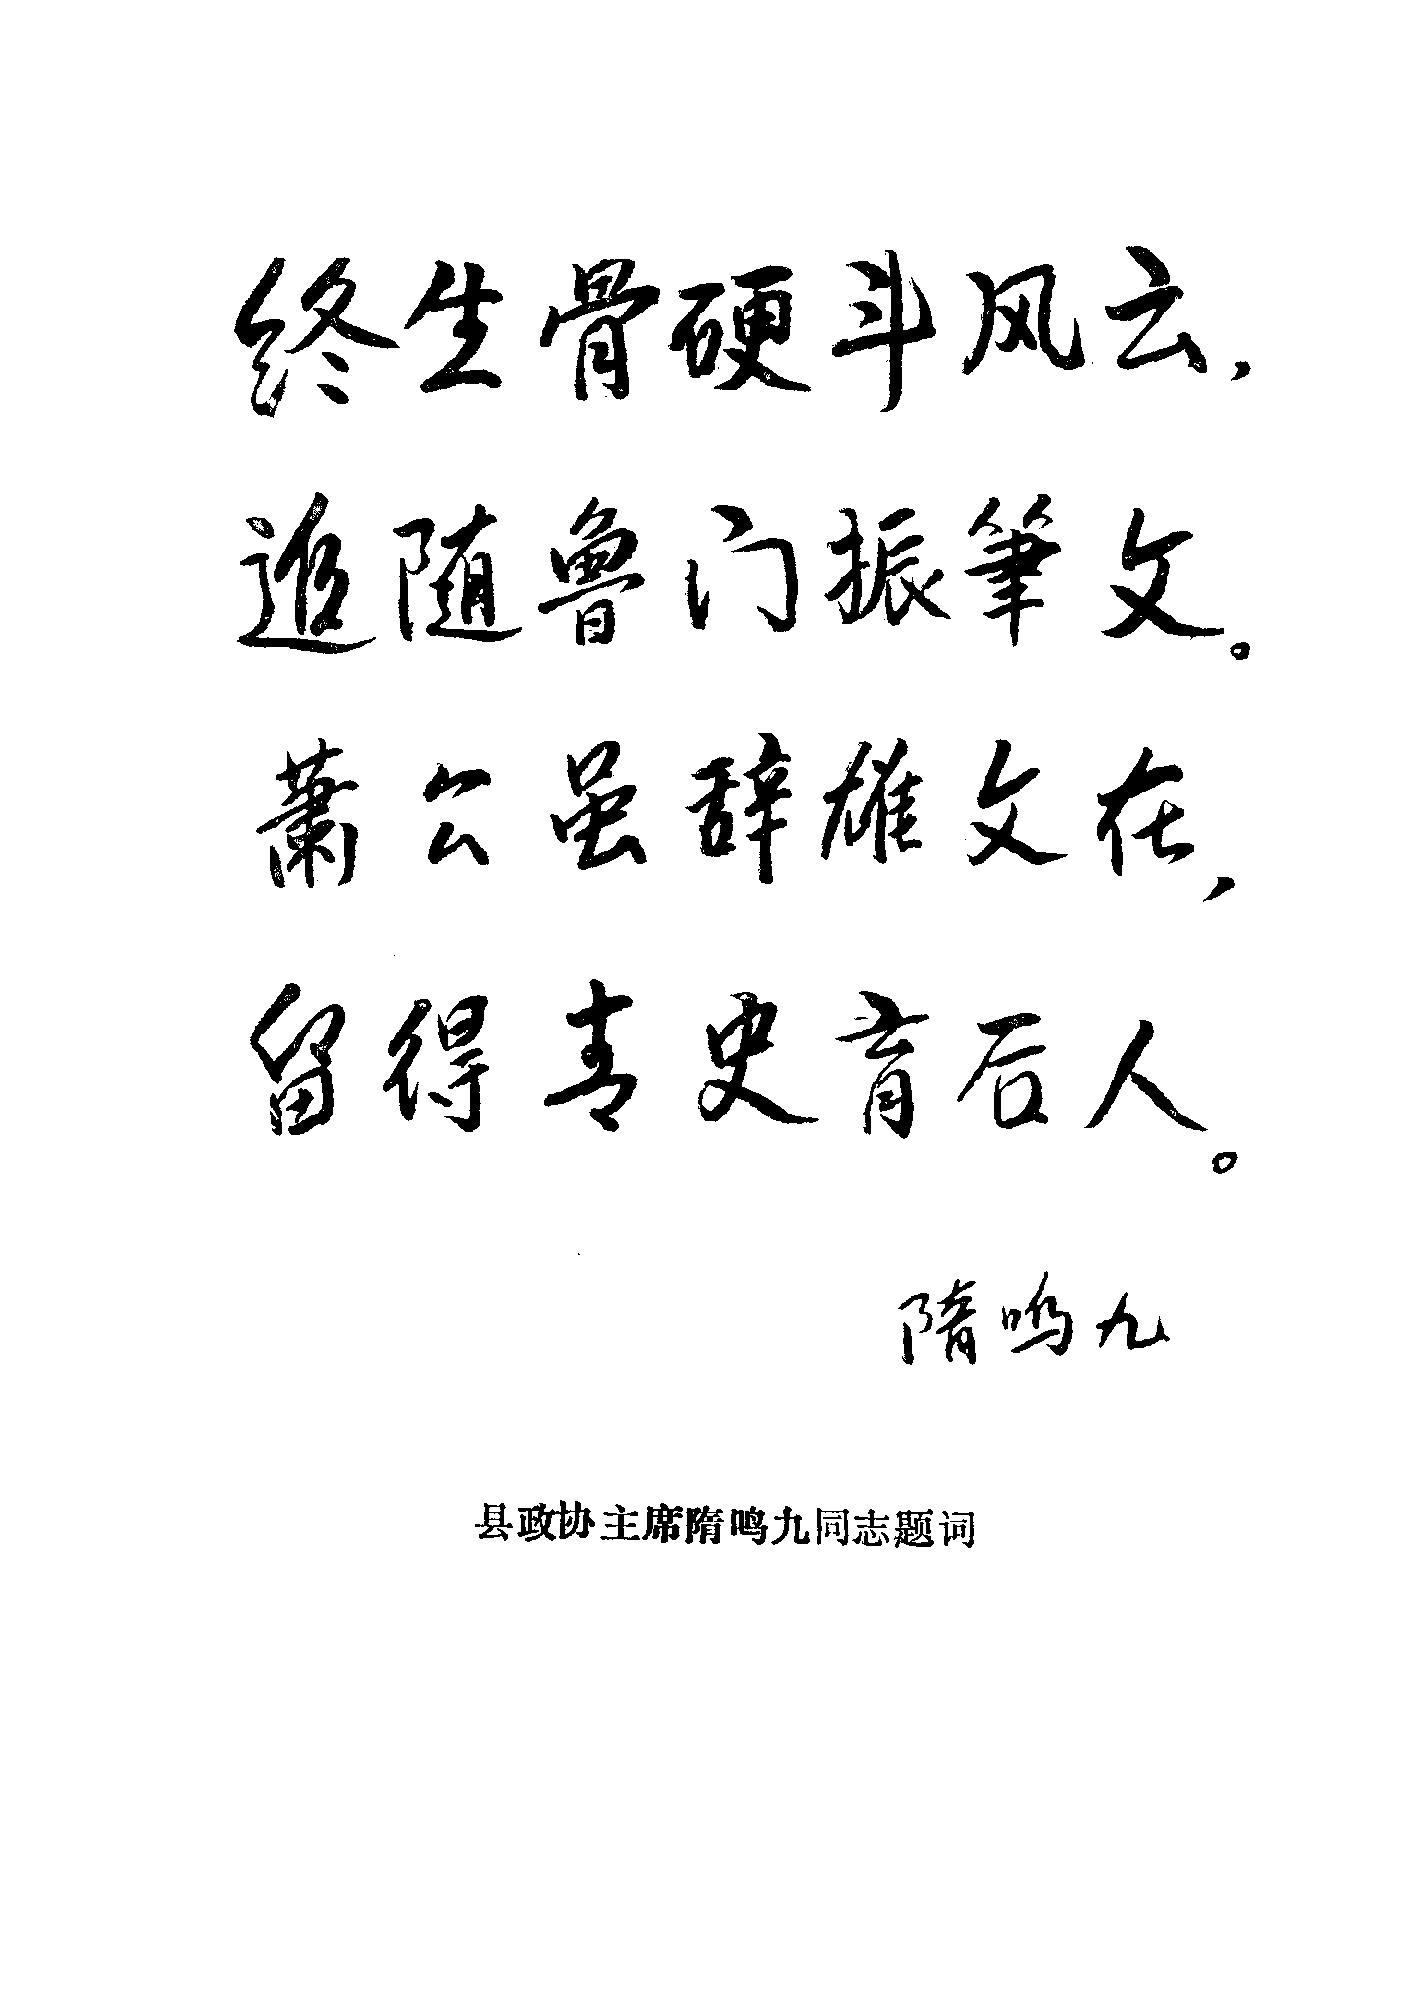 终生骨硬斗风云，
追随鲁门振筆文。
萧公虽辞雄文在，
留得青史育后人。
隋鸣九
县政协主席隋鸣九同志题词